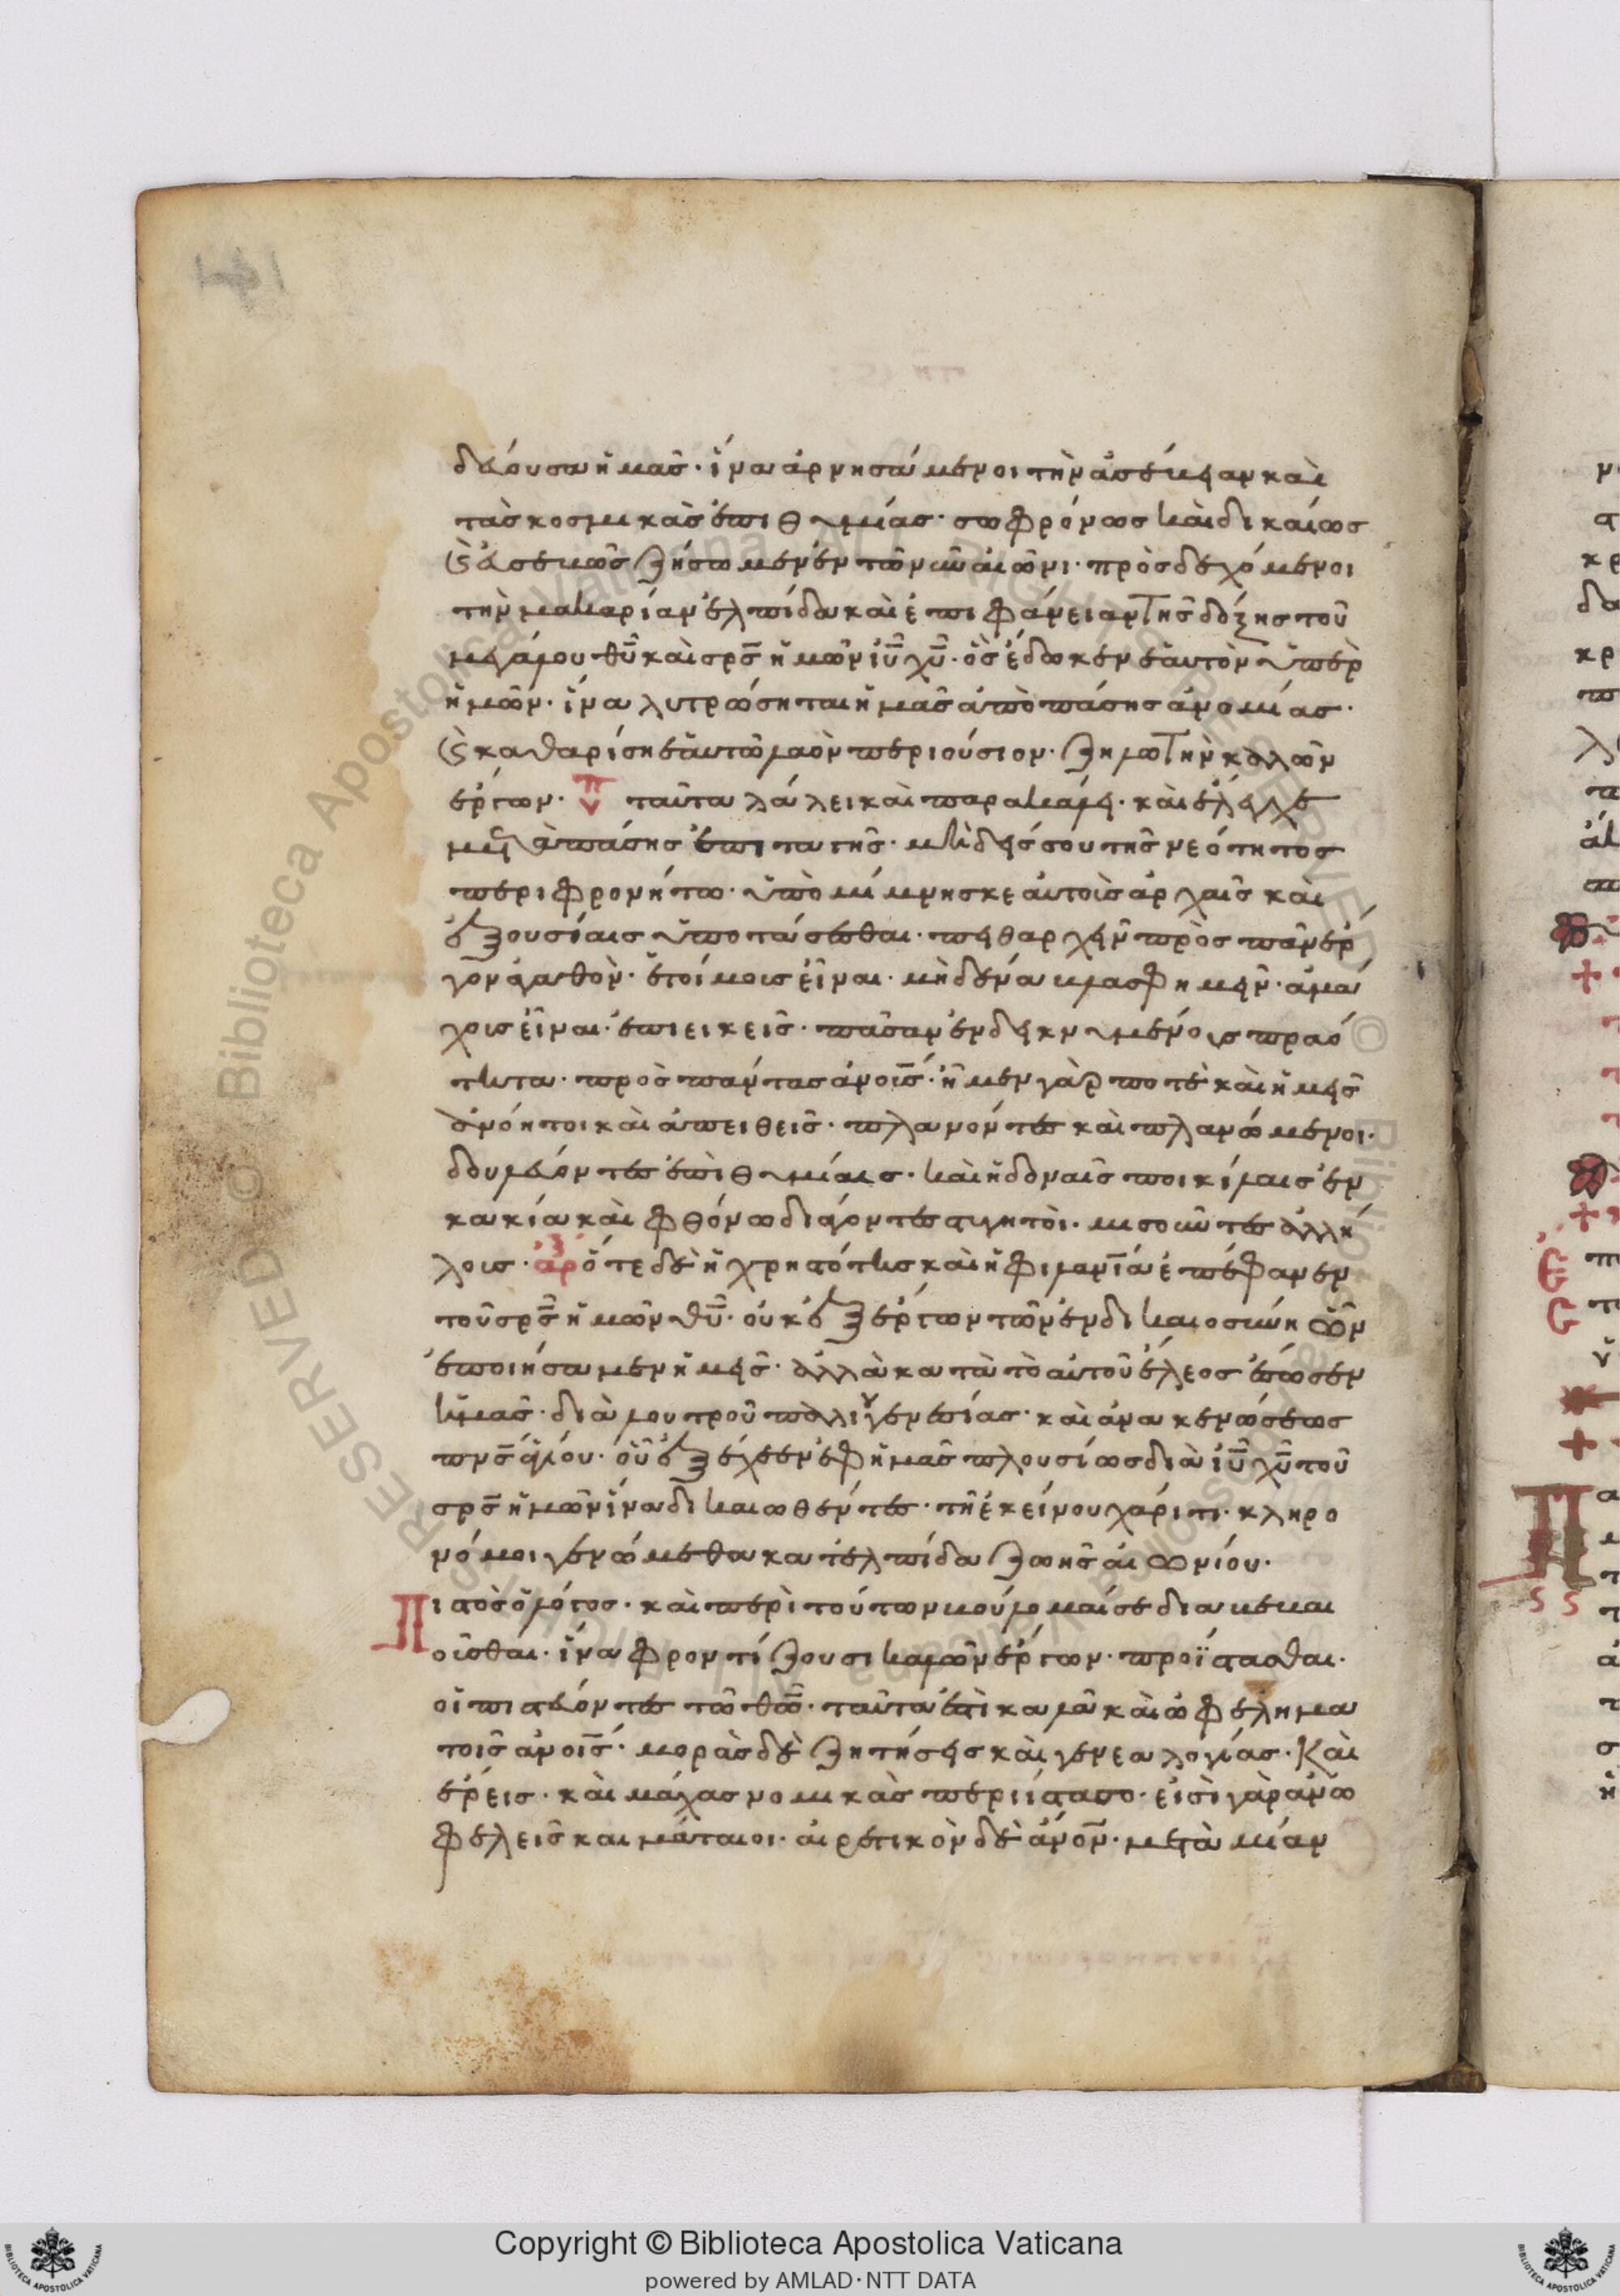 δεύουσα ἡμᾶς· ἵνα ἀρνησάμενοι τὴν ἀσέβειαν καὶ
τὰς κοσμικὰς ἐπιθυμίας· σωφρόνως καὶ δικαίως
καὶ εὐσεβῶς ζήσωμεν ἐν τῶ νῦν αἰῶνι· πρὸσδεχόμενοι
τὴν μακαρίαν ἐλπίδα καὶ ἐπιφάνειαν τῆς δόξης τοῦ
μεγάλου θῦ καὶ σρς ἡμῶν ἰῦ χῦ· ὃς ἔδωκεν ἑαυτὸν ὑπὲρ
ἡμῶν· ἵνα λυτρώσηται ἡμᾶς ἀπὸ πάσης ἀνομίας·
καὶ καθαρίση ἑαυτῶ λαὸν περιούσιον· ζηλωτὴν καλῶν
ἔργων· ταῦτα λάλει καὶ παρακάλει· καὶ ἔλεγχε
μετὰ πάσης ἐπιταγῆς· μηδείς σου τῆς νεότητος
περιφρονήτω· ὑπομίμνησκε αὐτοὺς ἀρχαῖς καὶ
ἐξουσίαις ὑποτάσεσθαι· πειθαρχεῖν πρὸς πᾶν ἔρ
γον ἀγαθὸν· ἑτοίμοις εἶναι· μὴδένα βλασφημεῖν· ἀμά
χοις εἶναι· ἐπιεικεῖς· πᾶσαν ἐνδεικνυμένοις πραό
τητα· πρὸς πάντας ἀνοῖς· ἦμεν γὰρ ποτὲ καὶ ἡμεῖς
ἀνόητοι καὶ ἀπειθεῖς· πλανοντες καὶ πλανώμενοι·
δουλεύοντες ἐπιθυμίαις· καὶ ἡδοναῖς ποικίλαις ἐν
κακία καὶ φθόνω διάγοντες στυγητοὶ· μισοῦντες ἀλλή
λοις· ἀρ ὅτε δὲ ἡ χρηστότης καὶ ἡ φιλανία ἐπέφανεν
τοῦ σρς ἡμῶν θῦ· οὐκ ἐξ ἔργων τῶν ἐν δικαιοσύνη ὧν
ἐποιήσαμεν ἡμεῖς· ἀλλὰ κατὰ τὸ αὐτοῦ ἔλεος ἔσωσεν
ἡμᾶς· διὰ λουτροῦ παλιγγενεσίας· καὶ ἀνακενώσεως
πνς ἁγίου· οὗ ἐξέχεεν ἐφ ἡμᾶς πλουσίως διὰ ἰῦ χῦ τοῦ
σρς ἡμῶν ἵνα δικαιωθέντες· τῆ ἐκείνου χάριτι· κληρο
νόμοι γενώμεθα κατ ἐλπίδα ζωῆς αἰωνίου·
Πιστὸς ὁ λόγος· καὶ περὶ τούτων βούλομαί σε διαβεβαι
οῦσθαι· ἵνα φροντίζουσι καλῶν ἔργων· προΐστασθαι·
οἱ πιστεύοντες τῶ θῶ· ταῦτα ἐστὶ καλὰ καὶ ὠφέλημα
τοῖς ἀνοῖς· μορὰς δὲ ζητήσεις καὶ γενεαλογίας· καὶ
ἔρεις· καὶ μάχας νομικὰς περιίστασο· εἰσὶ γὰρ ἀνω
φελεῖς και μάταιοι· αἱρετικὸν δὲ ἀνον· μετὰ μίαν